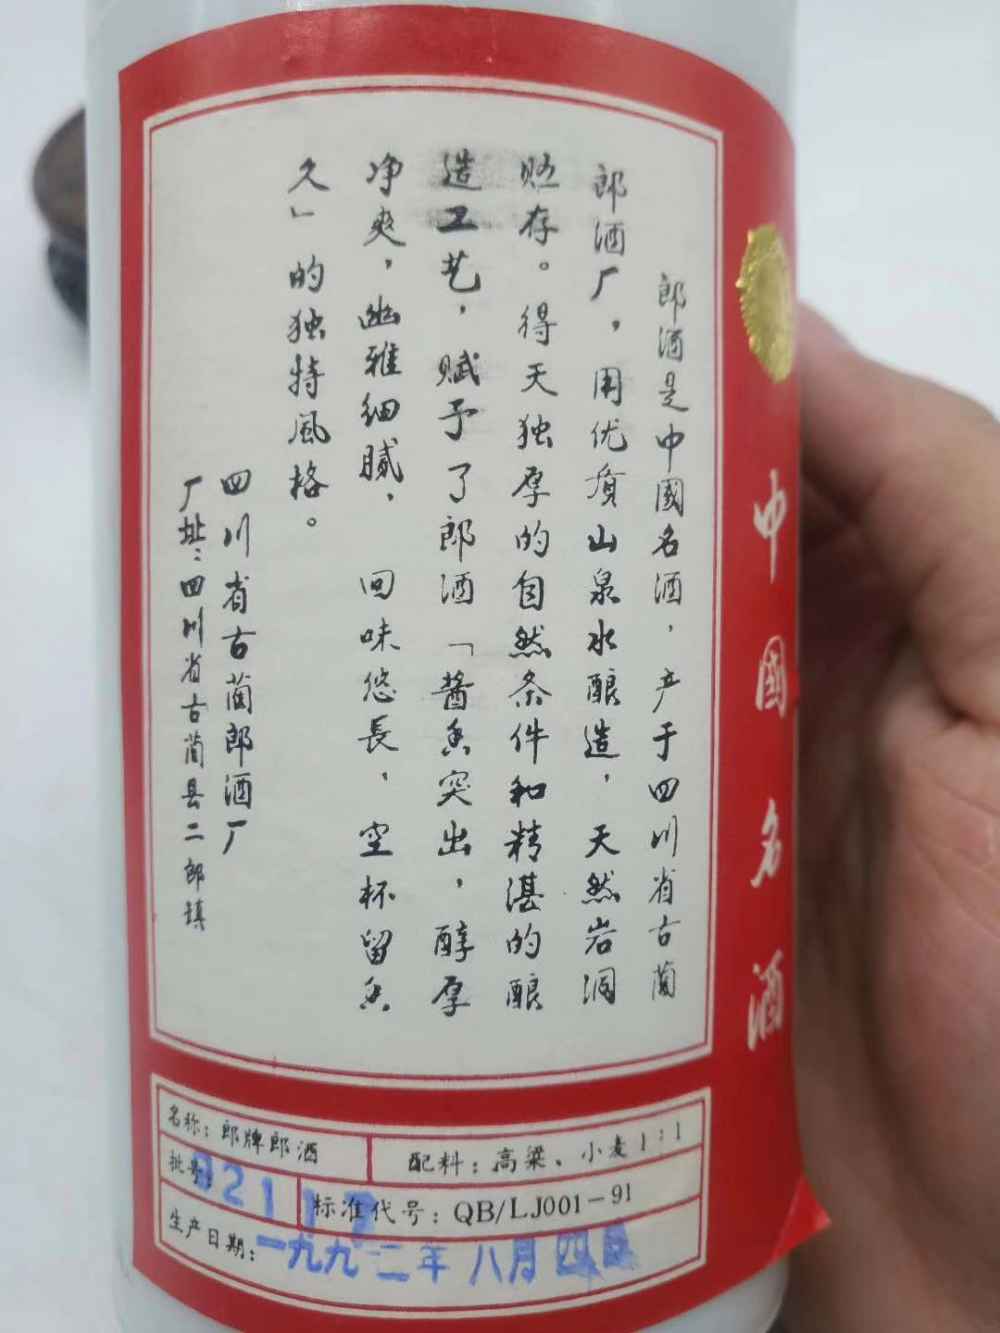 郎酒是中國名酒，产于四川省古蔺
郎酒厂，用优质山泉水酿造，天然岩洞
贮存。得天独厚的自然条件和精湛的酿
造工艺，赋予了郎酒「酱香突出，醇厚
净爽，幽雅细腻，回味悠長，空杯留香
久」的独特風格。
四川省古蔺郎酒厂
厂址：四川省古蔺县二郎镇
中國名酒
名称：郎牌郎酒
配料：高粱、小麦1:1
批号：
标准代号：QB/LJ001-91
生产日期：一九九二年八月四日